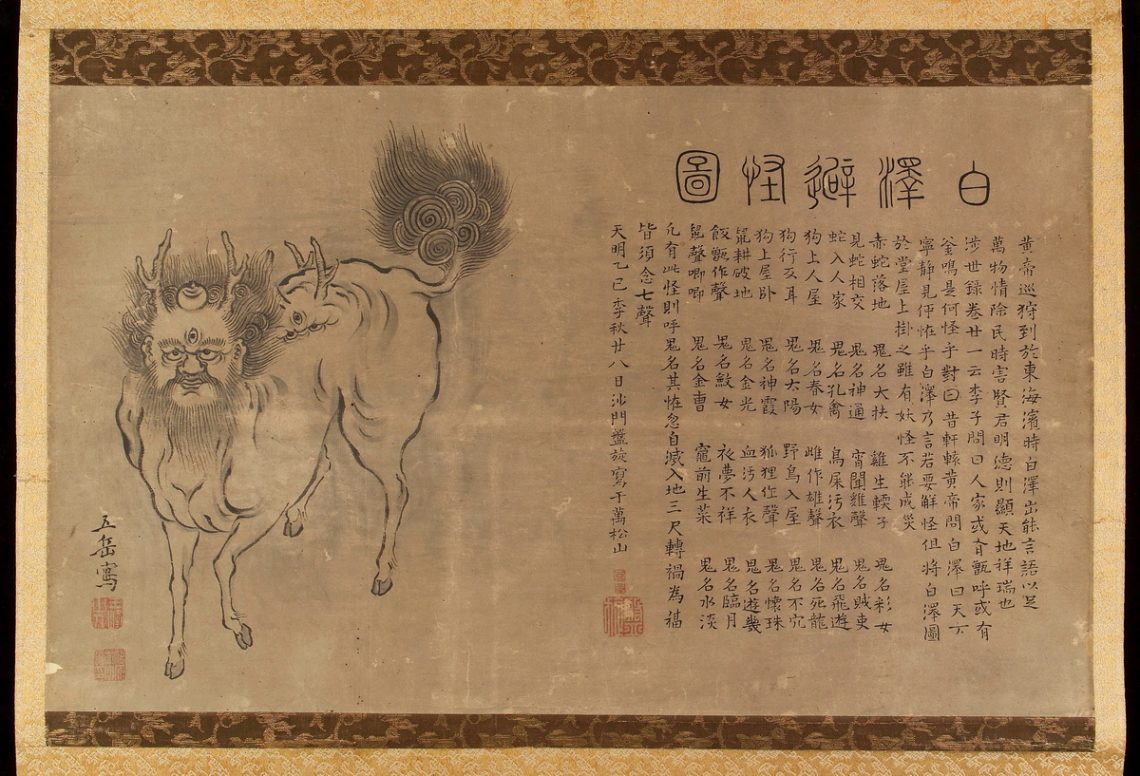 白澤避怪圖
黃帝巡狩到於東海濱時白澤出能言語以足
萬物情除民時害賢君明德則顯天地祥瑞也
涉世録卷廿一云李子問曰人家或有甑呼或有
釜鳴是何怪乎對曰昔軒轅黃帝問白澤曰天下
寧靜見何怪乎白澤乃言若要解怪但將白澤圖
於堂屋上掛之雖有妖怪不能成災
赤蛇落地 鬼名大扶 雞生軟子 鬼名彩女
見蛇相交 鬼名神通 宵聞雞聲 鬼名賊吏
蛇入人家 鬼名孔禽 鳥屎污衣 鬼名飛遊
狗上人屋 鬼名春女 雌作雄聲 鬼名死龍
狗行反耳 鬼名太陽 野鳥入屋 鬼名不
狗上屋卧 鬼名神霞 狐狸作聲 鬼名懷珠
鼠耕破地 鬼名金光 血污人衣 鬼名遊幾
飯甑作聲 鬼名女 衣夢不祥 鬼名臨月
鼠聲唧唧 鬼名金曹 竈前生菜 鬼名水淡
凡有此怪則呼鬼名其怪忽自滅入地三尺轉禍為福
皆須念七聲
天明乙巳季秋廿八日沙門盤旋寫于萬松山
五岳寫